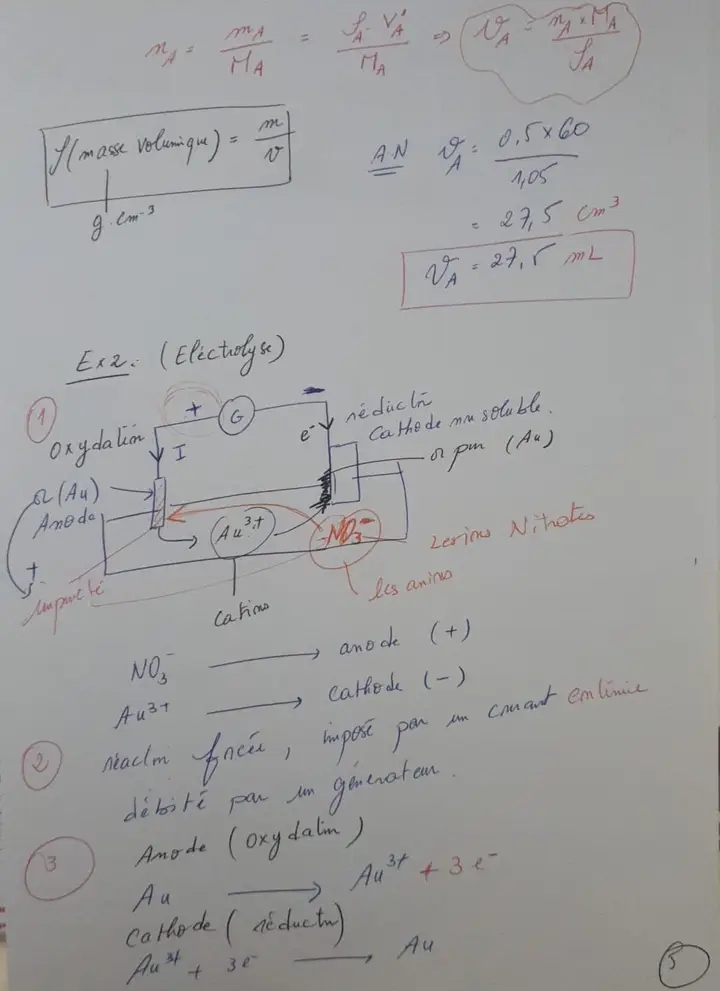 n_A = m_A / M_A = ρ_A · V_A / M_A ⇒ V_A = n_A × M_A / ρ_A
ρ (masse volumique) = m / v
g.cm⁻³
A.N V_A = 0,5 × 60 / 1,05
= 27,5 cm³
V_A = 27,5 mL
Ex2: (Eléctrolyse)
1
+ G -
Oxydation I e⁻ réduction
cathode insoluble.
or (Au) or pur (Au)
Anode
Au³⁺ NO₃⁻ Les ions Nitrates
+
impureté
cations les anions
NO₃⁻ → anode (+)
Au³⁺ → cathode (-)
2 réaction forcée, imposé par un courant continue
débité par un génerateur.
3 Anode (oxydation)
Au → Au³⁺ + 3e⁻
Cathode (réduction)
Au³⁺ + 3e⁻ → Au
5